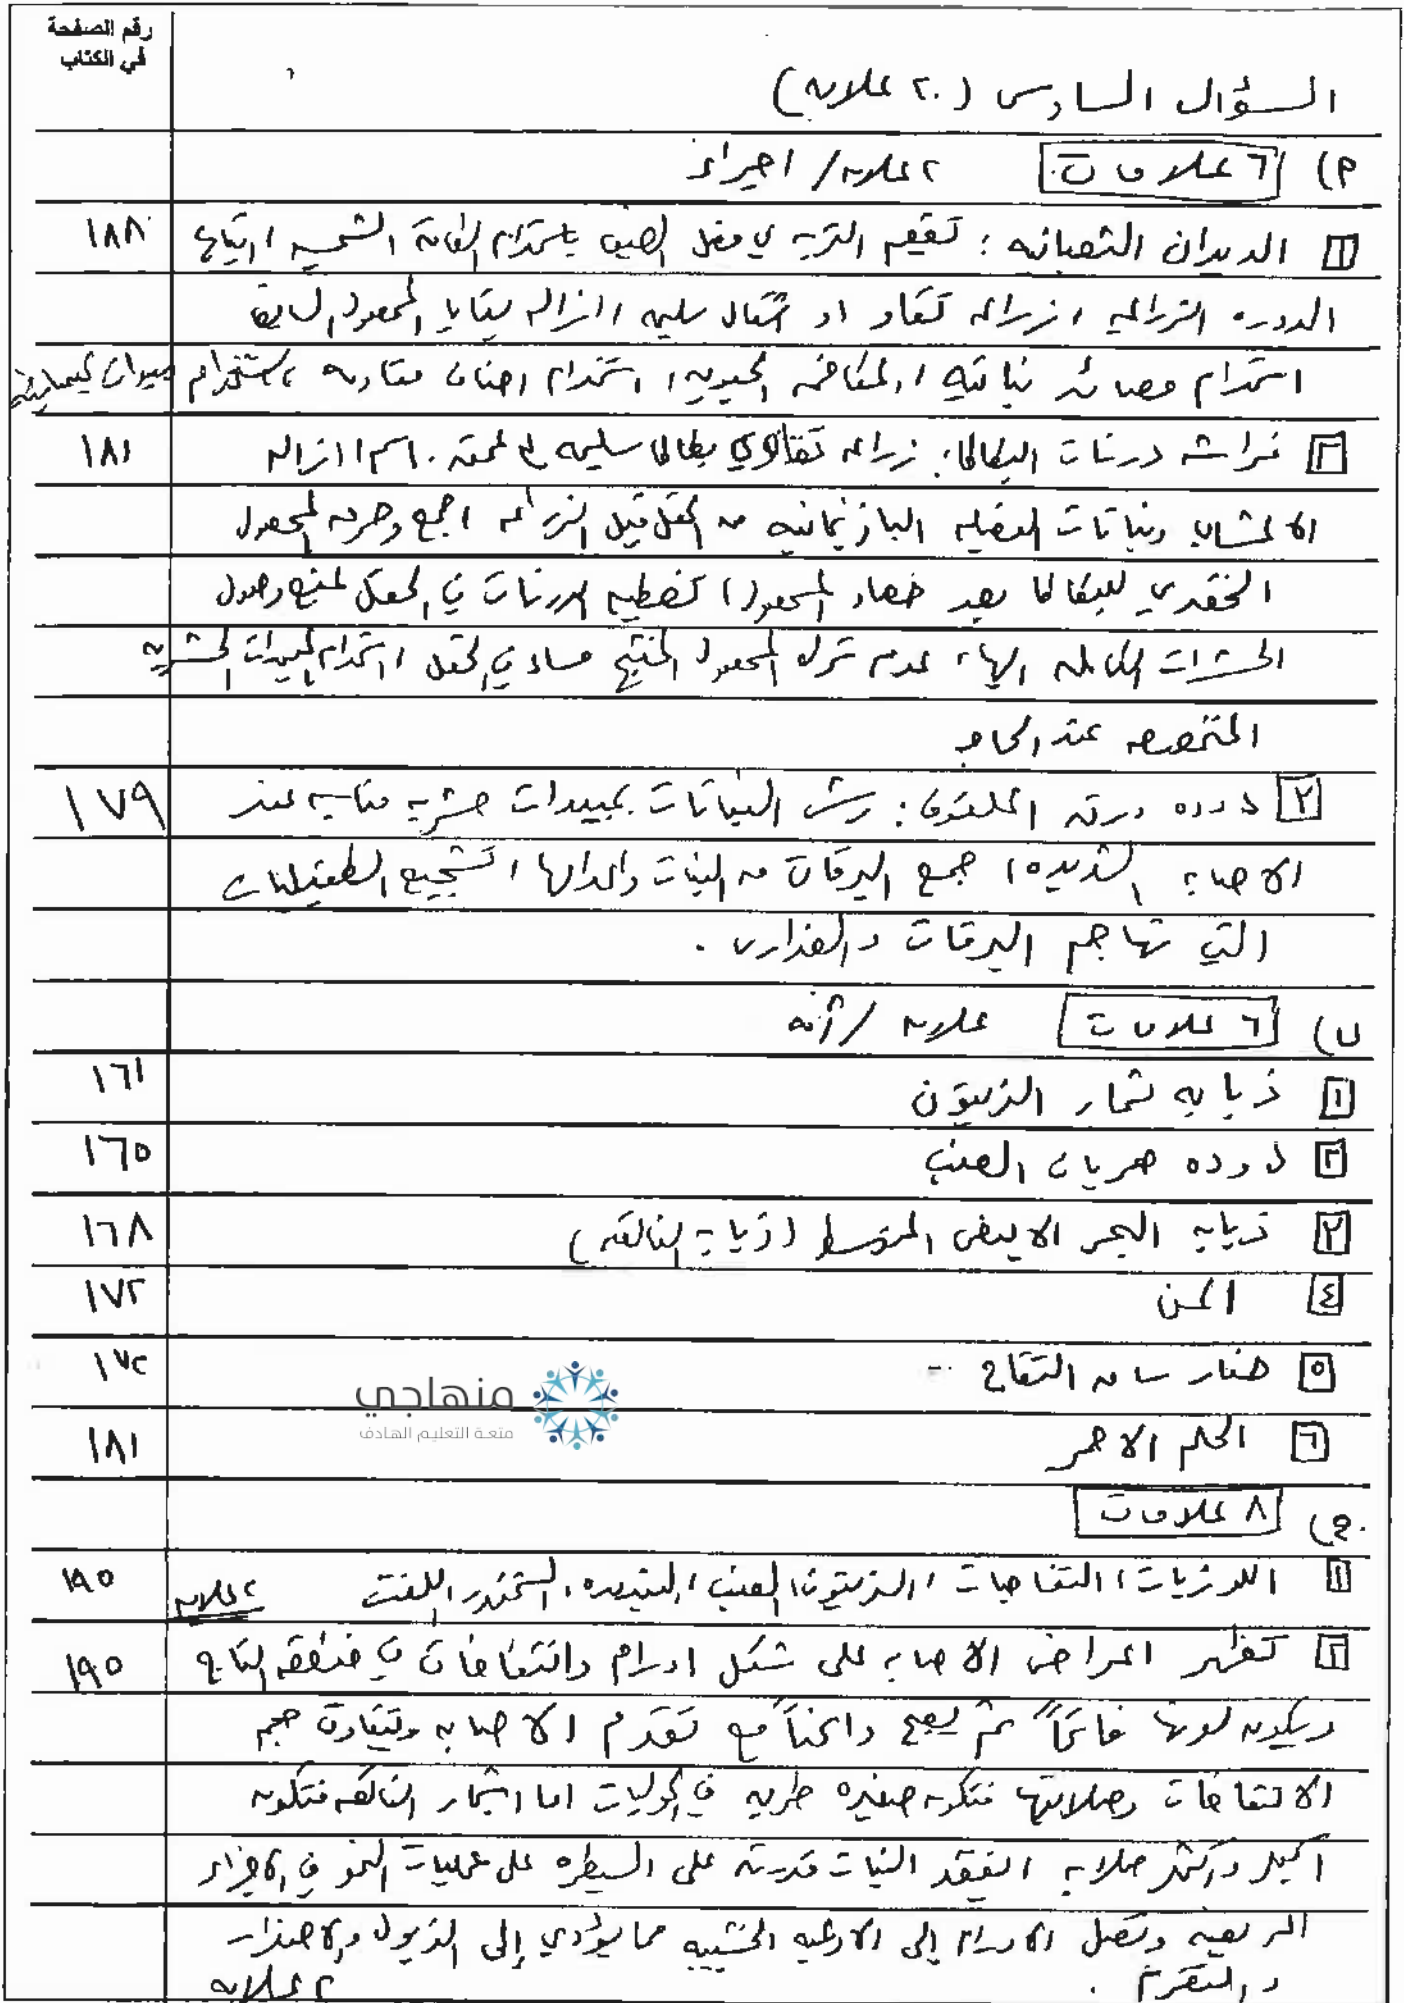 رقم الصفحة
في الكتاب
السؤال السادس (٢٠ علامه)
أ) ٦ علامات ٢ علامه / اجراء
١ الديدان الثعبانيه : تعقيم التربه في فصل الصيف باستخدام الطاقة الشمسيه ، اتباع ١٨٨
الدوره الزراعيه ، زراعه تقاو او اشتال سليمه ، ازاله بقايا المحصول السابق
استخدام مصائد نباتيه ، المكافحه الحيويه ، استخدام اصناف مقاومه ، استخدام مبيدات كيميائيه
٢ فراشه درنات البطاطا : زراعه تقاوي بطاطا سليمه في عمق ١٠ سم ، ازاله ١٨١
الاعشاب ونباتات الفصيله الباذنجانيه من الحقل قبل الزراعه ، جمع وحرق المحصول
الخضري للبطاطا بعد حصاد المحصول ، تغطيه الدرنات في الحقل لمنع وصول
الحشرات الكامله اليها ، عدم ترك المحصول المنتج مساء في الحقل ، استخدام المبيدات الحشريه
المتخصصه عند الحاجه
٣ دوده ورقه الملفوف : رش النباتات بمبيدات حشريه مناسبه عند ١٧٩
الاصابه الشديده ، جمع اليرقات من النبات واعدامها ، تشجيع الطفيليات
التي تهاجم اليرقات والعذارى .
ب) ٦ علامات علامه / آفه
١ ذبابه ثمار الزيتون ١٦١
٢ دوده هريان العنب ١٦٥
٣ ذبابه البحر الابيض المتوسط (ذبابه الفاكهه) ١٦٨
٤ المن ١٧٢
٥ حفار ساق التفاح ١٧٢
٦ الحلم الاحمر ١٨١
منهاجي
متعة التعليم الهادف
ج) ٨ علامات
١ اللوزيات ، التفاحيات ، الزيتون ، العنب ، البندوره ، الشمندر ، اللفت ٢ علامه ١٩٥
٢ تظهر اعراض الاصابه على شكل اورام وانتفاخات في منطقه التاج ١٩٥
ويكون لونها فاتحاً ثم يصبح داكناً مع تقدم الاصابه وتتفاوت حجم
الانتفاخات وصلابتها فتكون صغيره طريه في الحوليات اما اشجار الفاكهه فتكون
اكبر واكثر صلابه ، الفقد النبات قدرته على السيطره على عمليات النمو في الاجزاء
المريضه وتصل الاورام إلى الاوعيه الخشبيه مما يؤدي إلى الذبول والاصفرار
والتقزم . ٢ علامه